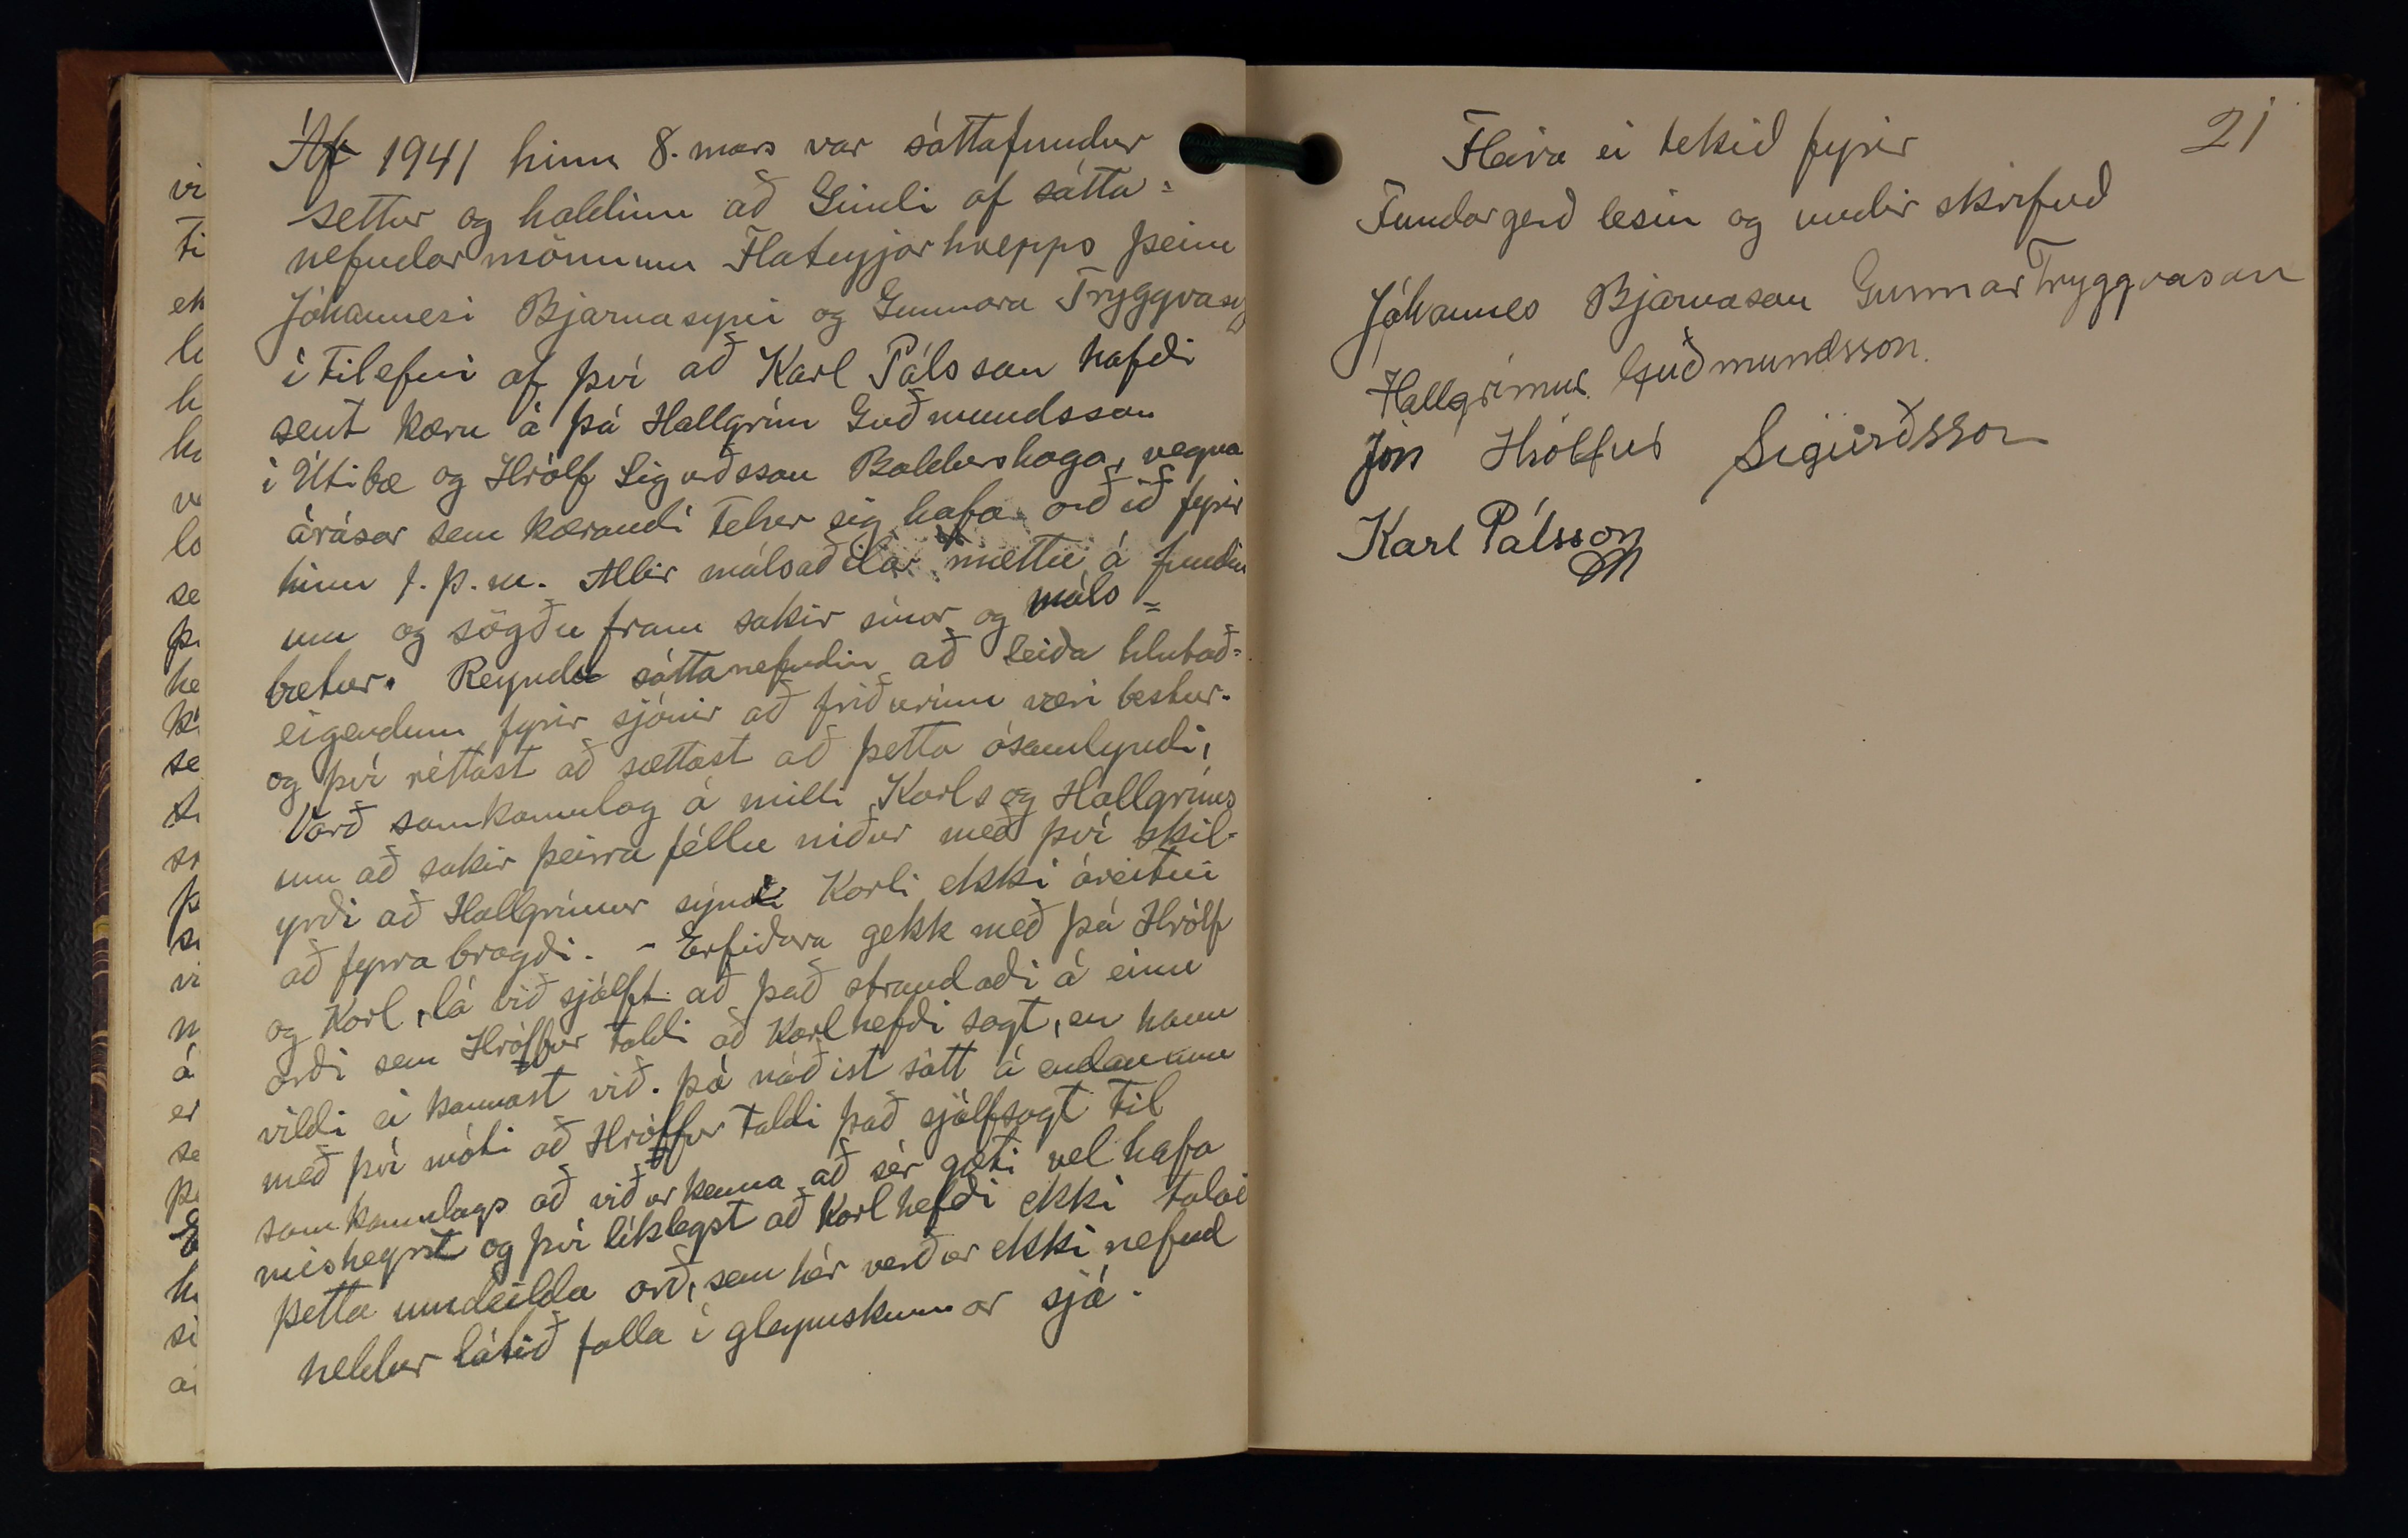 Ár 1941 hinn 8. mars var sáttafundur
settur og haldinn að Gimli af sátta=
nefndarmönnum Flateyjarhrepps þeim
Jóhannesi Bjarnasyni og Gunnara Tryggvasy
í tilefni af því að Karl Pálsson hafði
sent kæru á þá Hallgrím Guðmundsson
í Útibæ og Hrólf Sigurðsson Baldurshaga, vegna
árásar sem kærandi telur sig hafa orðið fyrir
hinn 1. þ. m. Allir málsaðilar mættu á fundin
um og sögðu fram sakir sínar og máls=
bætur. Reyndu sáttanefndin að leiða hlutað=
eigendum fyrir sjónir að friðurinn væri bestur.
og því réttast að sættast að þetta ósamlyndi,
Varð samkomulag á milli Karls og Hallgríms
um að sakir þeirra féllu niður með því skil-
yrði að Hallgrímur sýndi Karli ekki áreitni
að fyrra bragði. - Erfiðara gekk með þá Hrólf
og Karl, lá við sjálft að það strandaði á einu
orði sem Hrólfur taldi að Karl hefði sagt, en hann
vildi ei kannast við. þó náðist sátt á endanum
með því móti að Hrólfur taldi það sjálfsagt til
samkomulags að viðurkenna að sér gæti vel hafa
misheyrst og því líklegst að Karl hefði ekki talað
þetta umdeilda orð, sem hér verður ekki nefnd
heldur látið falla í gleymskunnar sjá.
21
Fleira ei tekið fyrir
Fundargerð lesin og undir skrifuð
Jóhannes Bjarnason Gunnar Tryggvason
Hallgrímur Guðmundsson.
Jón Hrólfur Sigurðsson
Karl Pálsson